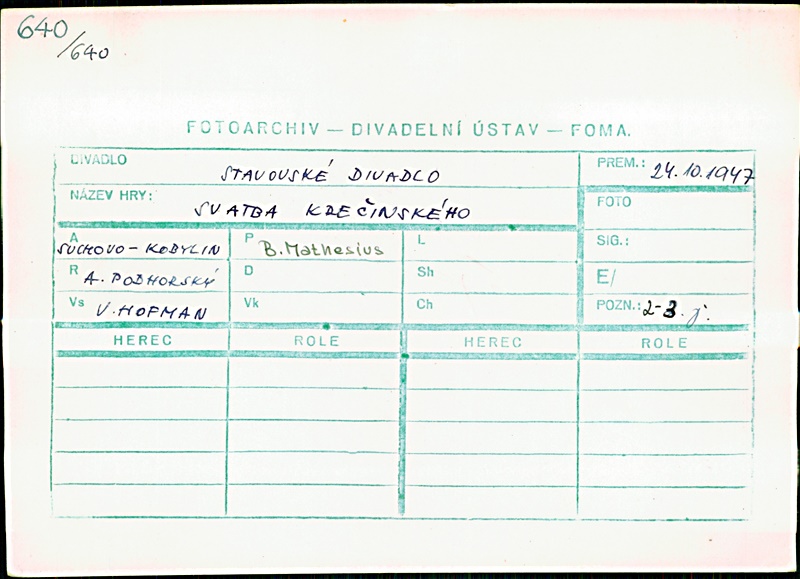 640
/640
FOTOARCHIV — DIVADELNÍ ÚSTAV — FOMA.
DIVADLO STAVOVSKÉ DIVADLO
PREM.: 24.10.1947
NÁZEV HRY: SVATBA KREČINSKÉHO
FOTO
A SUCHOVO-KOBYLIN P B. Mathesius L
SIG.:
R A. PODHORSKÝ D Sh
E/
Vs V. HOFMAN Vk Ch
POZN.: 2-3. j.
HEREC ROLE HEREC ROLE